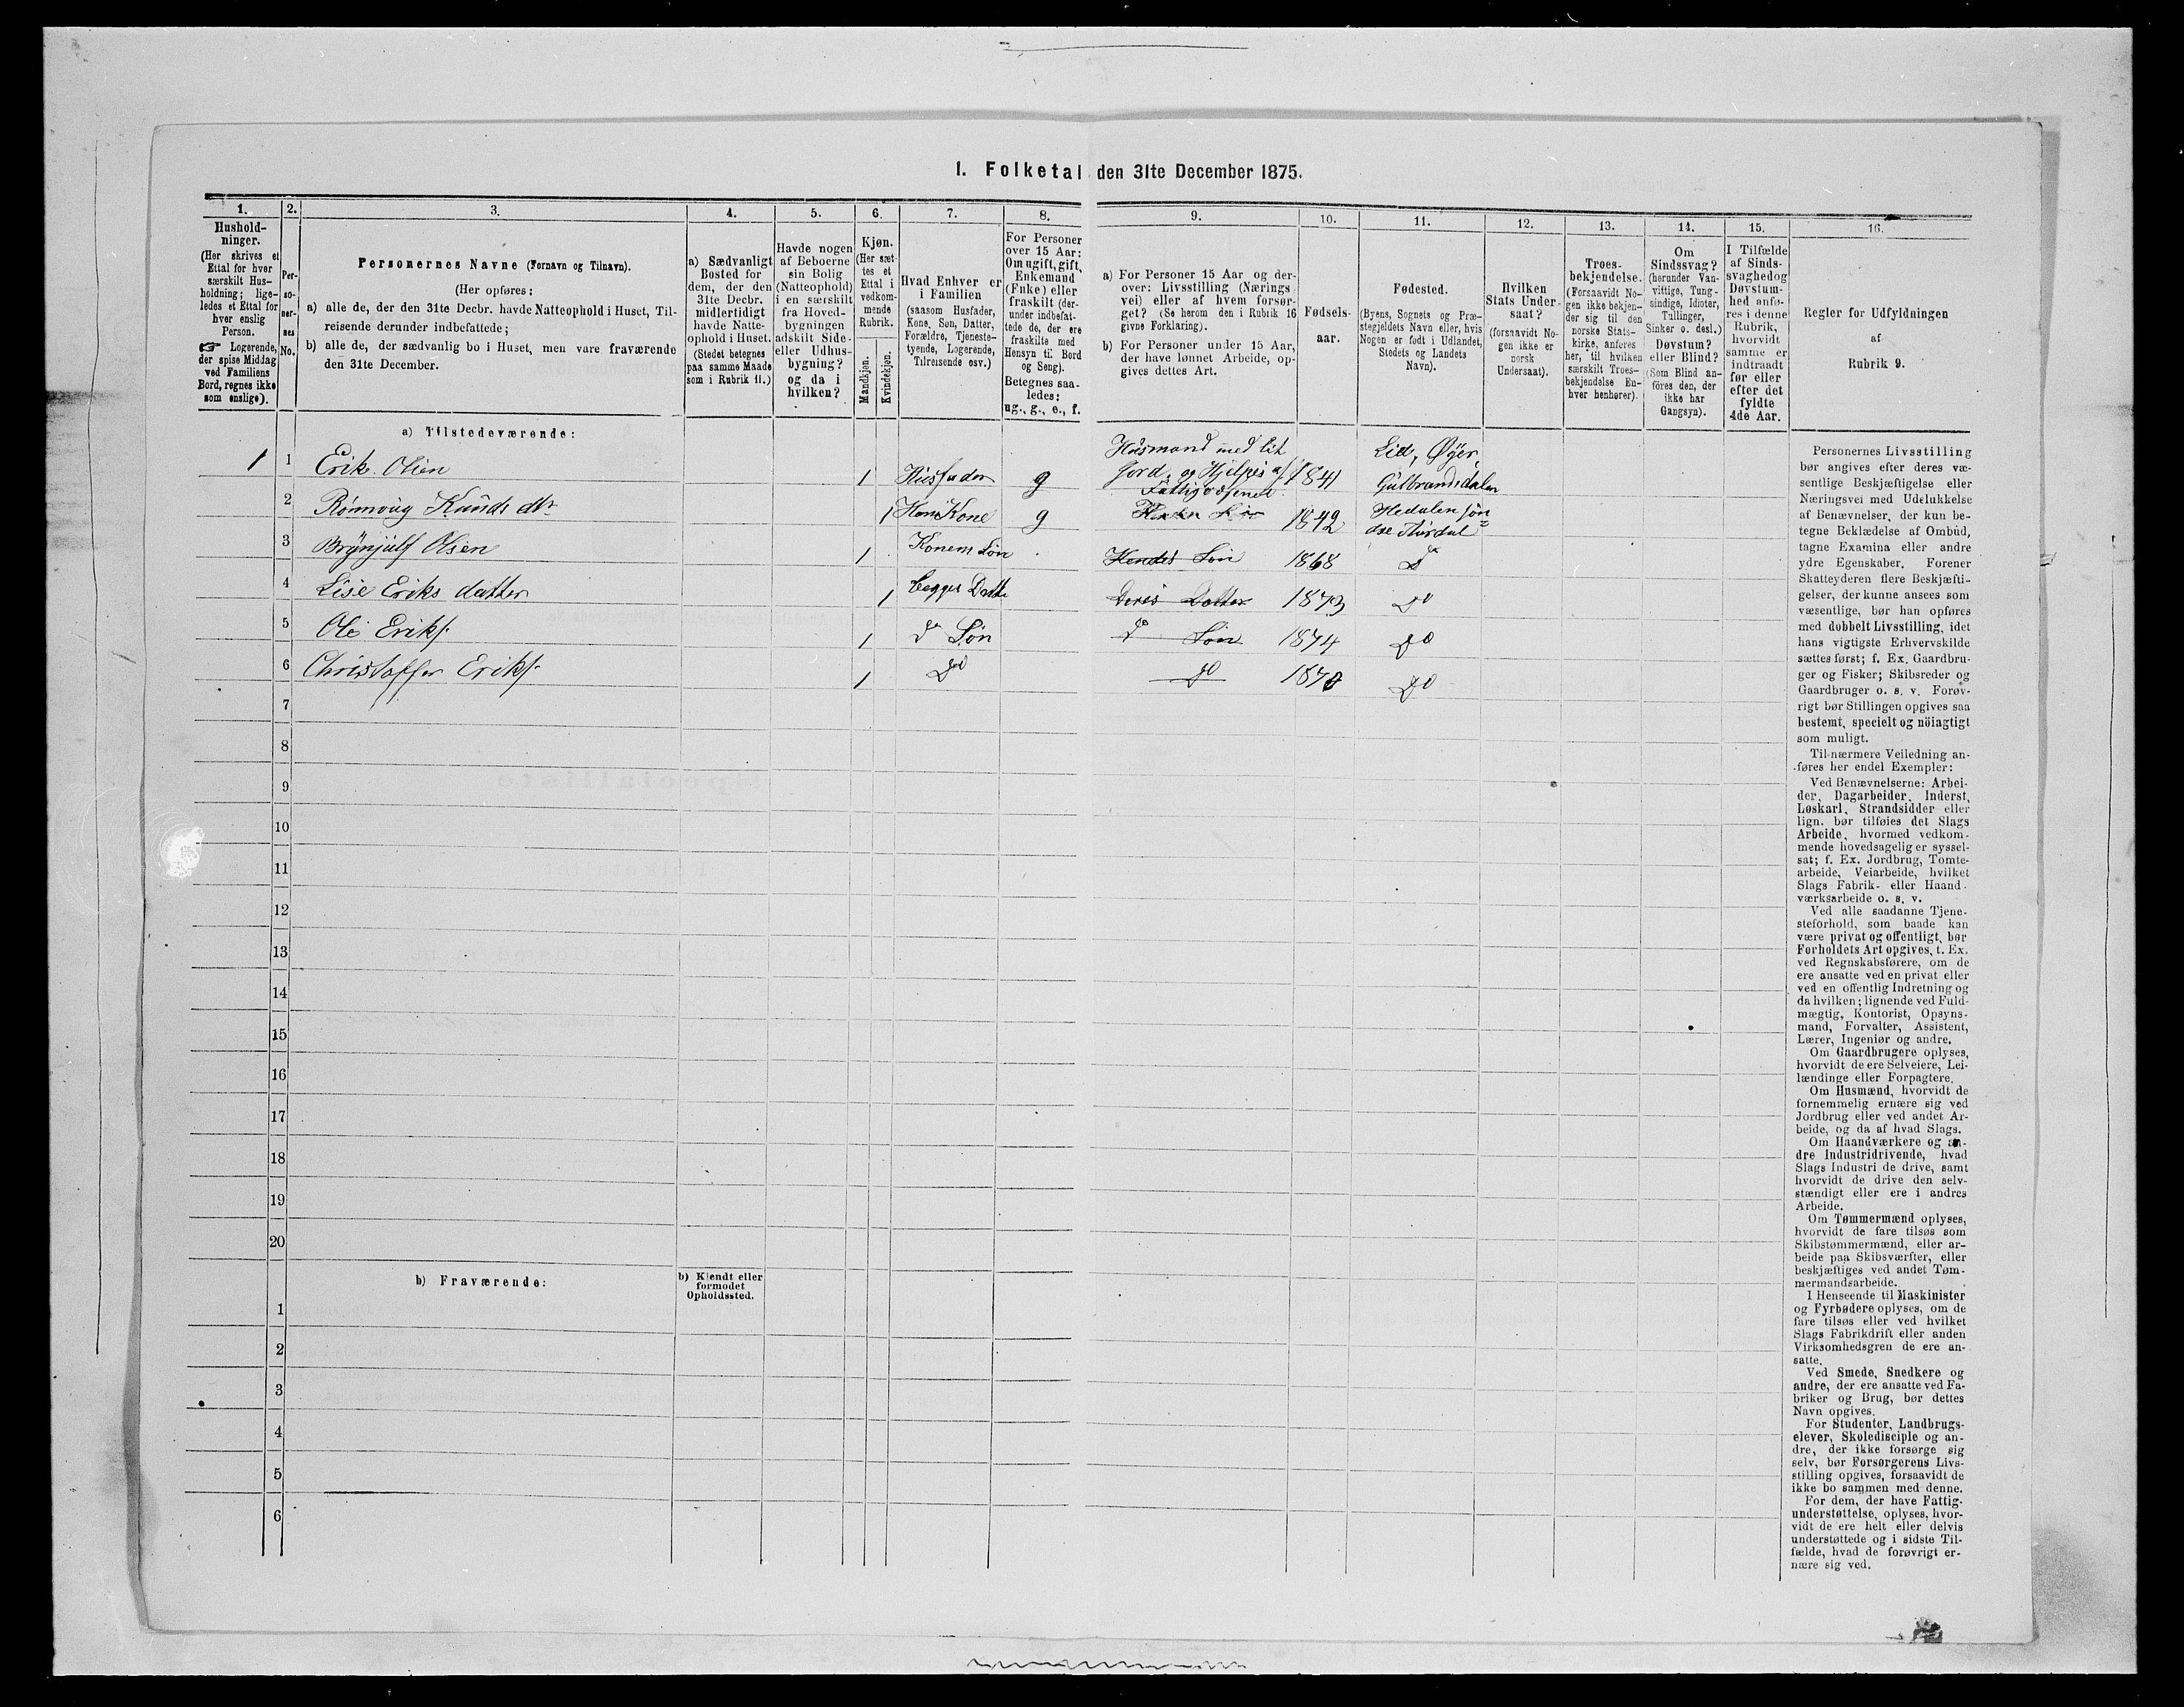 1. Folketal den 31te December 1875.
1. 2. 3. 4. 5. 6. 7. 8. 9. 10. 11. 12. 13. 14. 15. 16.
Hushold-
ninger.
(Her skrives et
Ettal for hver
særskilt Hus-
holdning; lige-
ledes et Ettal for
hver enslig
Person.
☞ Logerende,
der spise Middag
ved Familiens
Bord, regnes ikke
som enslige).
Per-
so-
ner-
nes
No.
Personernes Navne (Fornavn og Tilnavn).
(Her opføres:
a) alle de, der den 31te Decbr. havde Natteophold i Huset, Til-
reisende derunder indbefattede;
b) alle de, der sædvanlig bo i Huset, men vare fraværende
den 31te December.
a) Sædvanligt
Bosted for
dem, der den
31te Decbr.
midlertidigt
havde Natte-
ophold i Huset.
(Stedet betegnes
paa samme Maade
som i Rubrik 11.)
Havde nogen
af Beboerne
sin Bolig
(Natteophold)
i en særskilt
fra Hoved-
bygningen
adskilt Side-
eller Udhus-
bygning?
og da i
hvilken?
Kjøn.
(Her sæt-
tes et
Ettal i
vedkom-
mende
Rubrik.
Mandkjøn.
Kvindekjøn.
Hvad Enhver er
i Familien
(saasom Husfader,
Kone, Søn, Datter,
Forældre, Tjeneste-
tyende, Logerende,
Tilreisende osv.)
For Personer
over 15 Aar:
Om ugift, gift,
Enkemand
(Enke) eller
fraskilt (der-
under indbefat-
tede de, der ere
fraskilte med
Hensyn til Bord
og Seng).
Betegnes saa-
ledes:
ug., g., e., f.
a) For Personer 15 Aar og der-
over: Livsstilling (Nærings
vei) eller af hvem forsør-
get? (Se herom den i Rubrik 16
givne Forklaring).
b) For Personer under 15 Aar,
der have lønnet Arbeide, op-
gives dettes Art.
Fødsels-
aar.
Fødested.
(Byens, Sognets og Præ-
stegjeldets Navn eller, hvis
Nogen er født i Udlandet,
Stedets og Landets
Navn).
Hvilken
Stats Under-
saat?
(forsaavidt No-
gen ikke er
norsk
Undersaat).
Troes-
bekjendelse.
(Forsaavidt No-
gen ikke bekjen-
der sig til den
norske Stats-
kirke, anføres
her, til hvilken
særskilt Troes-
bekjendelse En-
hver henhører).
Om
Sindssvag?
(herunder Van-
vittige, Tung-
sindige, Idioter,
Tullinger,
Sinker o. desl.)
Døvstum?
eller Blind?
(Som Blind an-
föres den, der
ikke har
Gangsyn).
I Tilfælde
af Sinds-
svaghed og
Døvstum-
hed anfø-
res i denne
Rubrik,
hvorvidt
samme er
indtraadt
før eller
efter det
fyldte
4de Aar.
Regler for Udfyldningen
af
Rubrik 9.
a) Tilstedeværende:
1 1 Erik Olsen 1 Husfader g Husmand med lit
Jord, og Hjelpes af
Fattigvæsenet 1841 Lid, Øyer,
Gulbrandsdalen
2 Rønnoug Knuds dtr 1 Hans Kone g 1842 Hedalen søn
dre Aurdal
3 Brynjulf Olsen 1 Konens Søn Hendes Søn 1868 Do
4 Lise Eriks datter 1 begges Datter Deres Datter 1873 Do
5 Ole Eriks. 1 Do Søn Do Søn 1874 Do
6 Christoffer Eriks. 1 Do Do Do
7
8
9
10
11
12
13
14
15
16
17
18
19
20
b) Fraværende:
b) Kjendt eller
formodet
Opholdssted.
1
2
3
4
5
6
Personernes Livsstilling
bør angives efter deres væ-
sentlige Beskjæftigelse eller
Næringsvei med Udelukkelse
af Benævnelser, der kun be-
tegne Beklædelse af Ombud,
tagne Examina eller andre
ydre Egenskaber. Forener
Skatteyderen flere Beskjæfti-
gelser, der kunne ansees som
væsentlige, bør han opføres
med dobbelt Livsstilling, idet
hans vigtigste Erhvervskilde
sættes først; f. Ex. Gaardbru-
ger og Fisker; Skibsreder og
Gaardbruger o. s. v. Forøv-
rigt bør Stillingen opgives saa
bestemt, specielt og nöiagtigt
som muligt.
Til nærmere Veiledning an-
føres her endel Exempler:
Ved Benævnelserne: Arbei-
der, Dagarbeider, Inderst,
Løskarl, Strandsidder eller
lign. bør tilføies det Slags
Arbeide, hvormed vedkom-
mende hovedsagelig er syssel-
sat; f. Ex. Jordbrug, Tomte-
arbeide, Veiarbeide, hvilket
Slags Fabrik- eller Haand-
værksarbeide o. s. v.
Ved alle saadanne Tjene-
steforhold, som baade kan
være privat og offentligt, bør
Forholdets Art opgives, t. Ex.
ved Regnskabsførere, om de
ere ansatte ved en privat eller
ved en offentlig Indretning og
da hvilken; lignende ved Fuld-
mægtig, Kontorist, Opsyns-
mand, Forvalter, Assistent,
Lærer, Ingeniør og andre.
Om Gaardbrugere oplyses,
hvorvidt de ere Selveiere, Lei-
lændinge eller Forpagtere.
Om Husmænd, hvorvidt de
fornemmelig ernære sig ved
Jordbrug eller ved andet Ar-
beide, og da af hvad Slags.
Om Haandværkere og an-
dre Industridrivende, hvad
Slags Industri de drive, samt
hvorvidt de drive den selv-
stændigt eller ere i andres
Arbeide.
Om Tømmermænd oplyses,
hvorvidt de fare tilsøs som
Skibstømmermænd, eller ar-
beide paa Skibsværfter, eller
beskjæftiges ved andet Tøm-
mermandsarbeide.
I Henseende til Maskinister
og Fyrbødere oplyses, om de
fare tilsøs eller ved hvilket
Slags Fabrikdrift eller anden
Virksomhedsgren de ere an-
satte.
Ved Smede, Snedkere og
andre, der ere ansatte ved Fa-
briker og Brug, bør dettes
Navn opgives.
For Studenter, Landbrugs-
elever, Skoledisciple og an-
dre, der ikke forsørge sig
selv, bør Forsørgerens Livs-
stilling opgives, forsaavidt de
ikke bo sammen med denne.
For dem, der have Fattig-
understøttelse, oplyses, hvor-
vidt de ere helt eller delvis
understøttede og i sidste Til-
fælde, hvad de forøvrigt er-
nære sig ved.